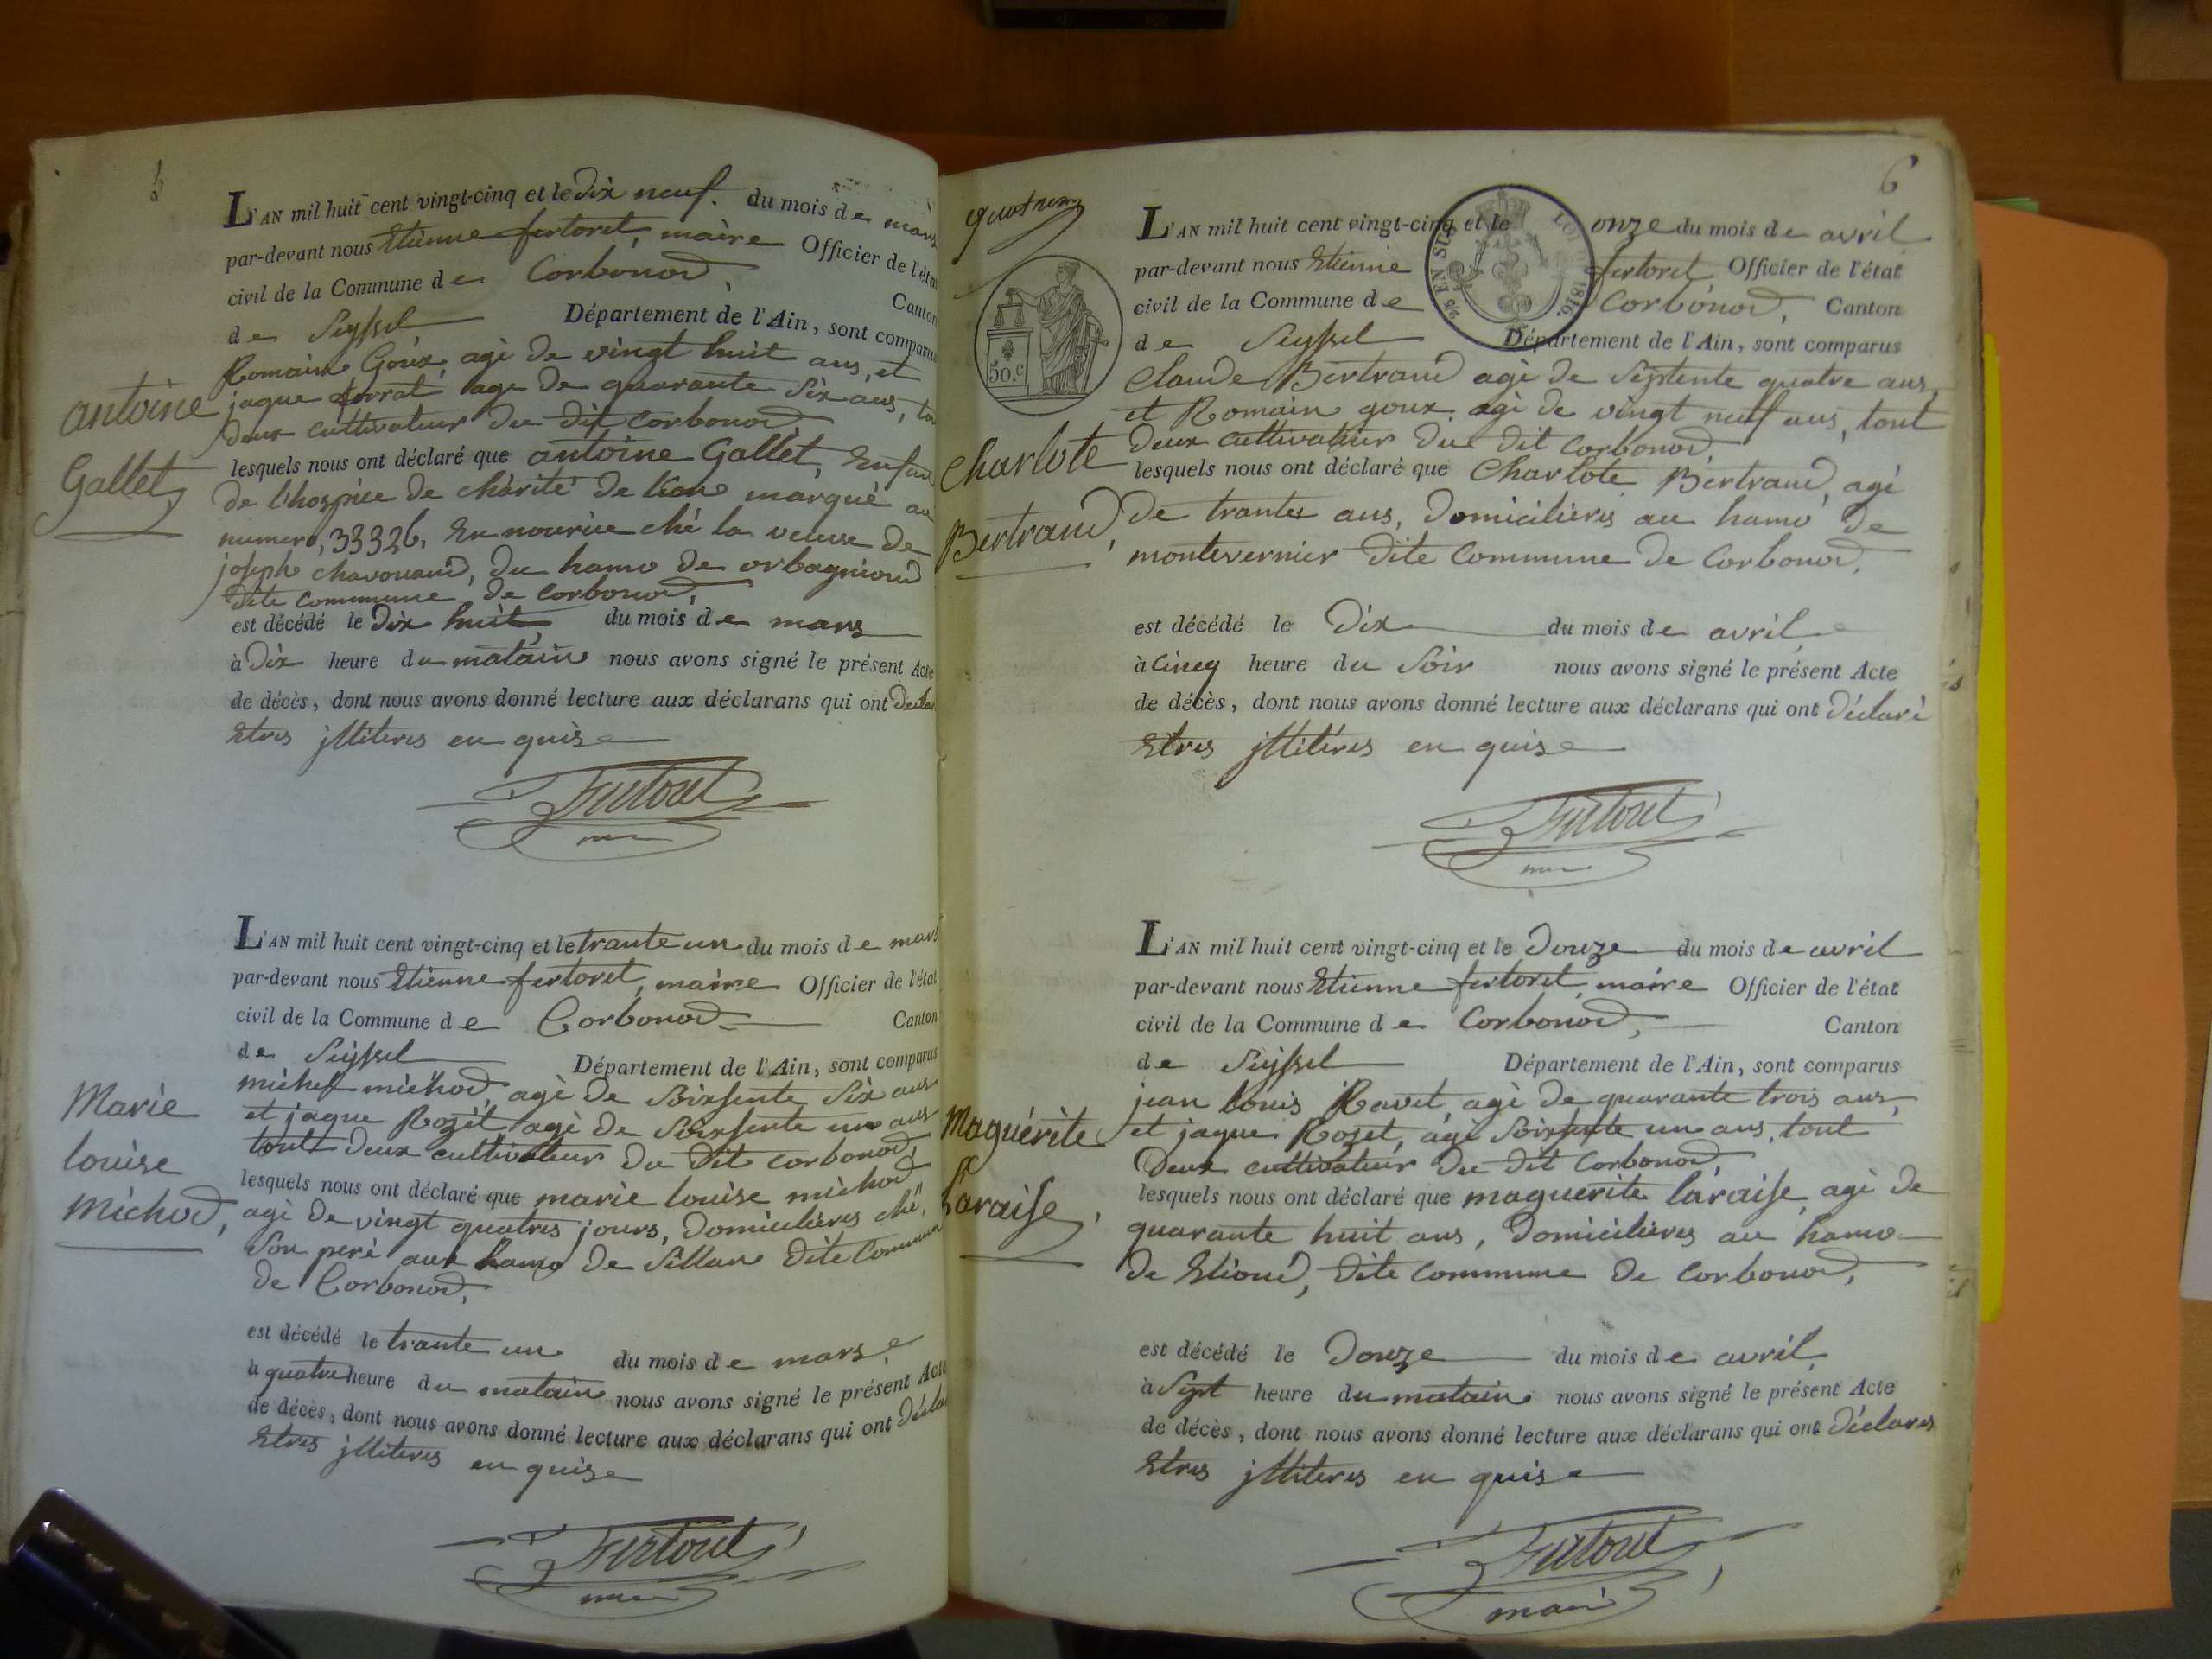 L'AN mil huit cent vingt-cinq et le Dix neuf. du mois de mars
par-devant nous Etienne fertoret, maire Officier de l'état
civil de la Commune de Corbonod, Canton
de Seyssel Département de l'Ain, sont comparus
Romain Goux, agé de vingt huit ans, et
jaque agé de quarante Six ans, tou
Deux cultivateur du dit Corbonod
antoine
Gallet
lesquels nous ont déclaré que antoine Gallet, Enfan
de l'hospice de charité de marqué au
numero, 33326, En nourice ché la veuve de
joseph chavouand, du hamo de orbagnioud
dite commune de Corbonod,
est décédé le Dix huit du mois de mars
à Dix heure du matain nous avons signé le présent Acte
de décès, dont nous avons donné lecture aux déclarans qui ont Déclar
Etres jlliteres en quise
Fertoret
L'AN mil huit cent vingt-cinq et le trante un du mois de mars
par-devant nous Etienne fertoret, maire Officier de l'état
civil de la Commune de Corbonod Canton
de Seyssel Département de l'Ain, sont comparus
michel michod, agé de Soixsente Six ans
et jaque Rozet agé de Soixsente un ans
tout Deux cultivateur du Dit Corbonod,
Marie
louise
Michod,
lesquels nous ont déclaré que marie louise michod
agé de vingt quatres jours, Domicilieres ché,
Son peré aux hamo de Sillan Dite Commun
de Corbonod,
est décédé le trante un du mois de mars
à quatre heure du matain nous avons signé le présent Acte
de décès, dont nous avons donné lecture aux déclarans qui ont Déclar
Etres jlliteres en quise
Fertoret
6
L'AN mil huit cent vingt-cinq et le onze du mois de avril
par-devant nous Etienne fertoret Officier de l'état
civil de la Commune de Corbonod, Canton
de Seyssel Département de l'Ain, sont comparus
50.c
EN SUS
LOI 1816
Claude Bertrand agé de Septente quatre ans,
et Romain goux agé de vingt neuf ans, tout
Deux cultivateur du dit Corbonod,
Charlote
Bertrand,
lesquels nous ont déclaré que Charlote Bertrand, agé
de trantes ans, Domicilieres au hamo de
montevernier dite Commune de Corbonod,
est décédé le Dix du mois de avril
à Cincq heure du Soir nous avons signé le présent Acte
de décès, dont nous avons donné lecture aux déclarans qui ont déclaré
Etres jlliteres en quise
Fertoret
L'AN mil huit cent vingt-cinq et le Douze du mois de avril
par-devant nous Etienne fertoret, maire Officier de l'état
civil de la Commune de Corbonod, Canton
de Seyssel Département de l'Ain, sont comparus
jean louis Ravet, agé de quarante trois ans,
et jaque Rozet, agé Soixsente un ans, tout
Deux cultivateur du dit Corbonod,
Maguérite
Laraise,
lesquels nous ont déclaré que maguerite laraise, agé de
quarante huit ans, Domicilieres au hamo
de Etioud, dite Commune de Corbonod,
est décédé le Douze du mois de avril,
à Sept heure du matain nous avons signé le présent Acte
de décès, dont nous avons donné lecture aux déclarans qui ont déclares
Etres jlliteres en quise
Fertoret
maire